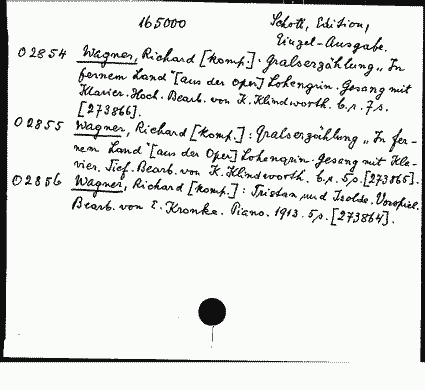 165000
Schott, Edition,
Einzel-Ausgabe.
02854 Wagner, Richard [Komp.]: Gralserzählung „In
fernem Land" [aus der Oper] Lohengrin. Gesang mit
Klavier. Hoch. Bearb. von K. Klindworth. 7 S.
[273866].
02855 Wagner, Richard [Komp.]: Gralserzählung „In fer-
nem Land" [aus der Oper] Lohengrin. Gesang mit Kla-
vier. Tief. Bearb. von K. Klindworth. 5 S. [273865].
02856 Wagner, Richard [Komp.]: Tristan und Isolde. Vorspiel.
Bearb. von E. Kronke. Piano. 1913. 5 S. [273864].